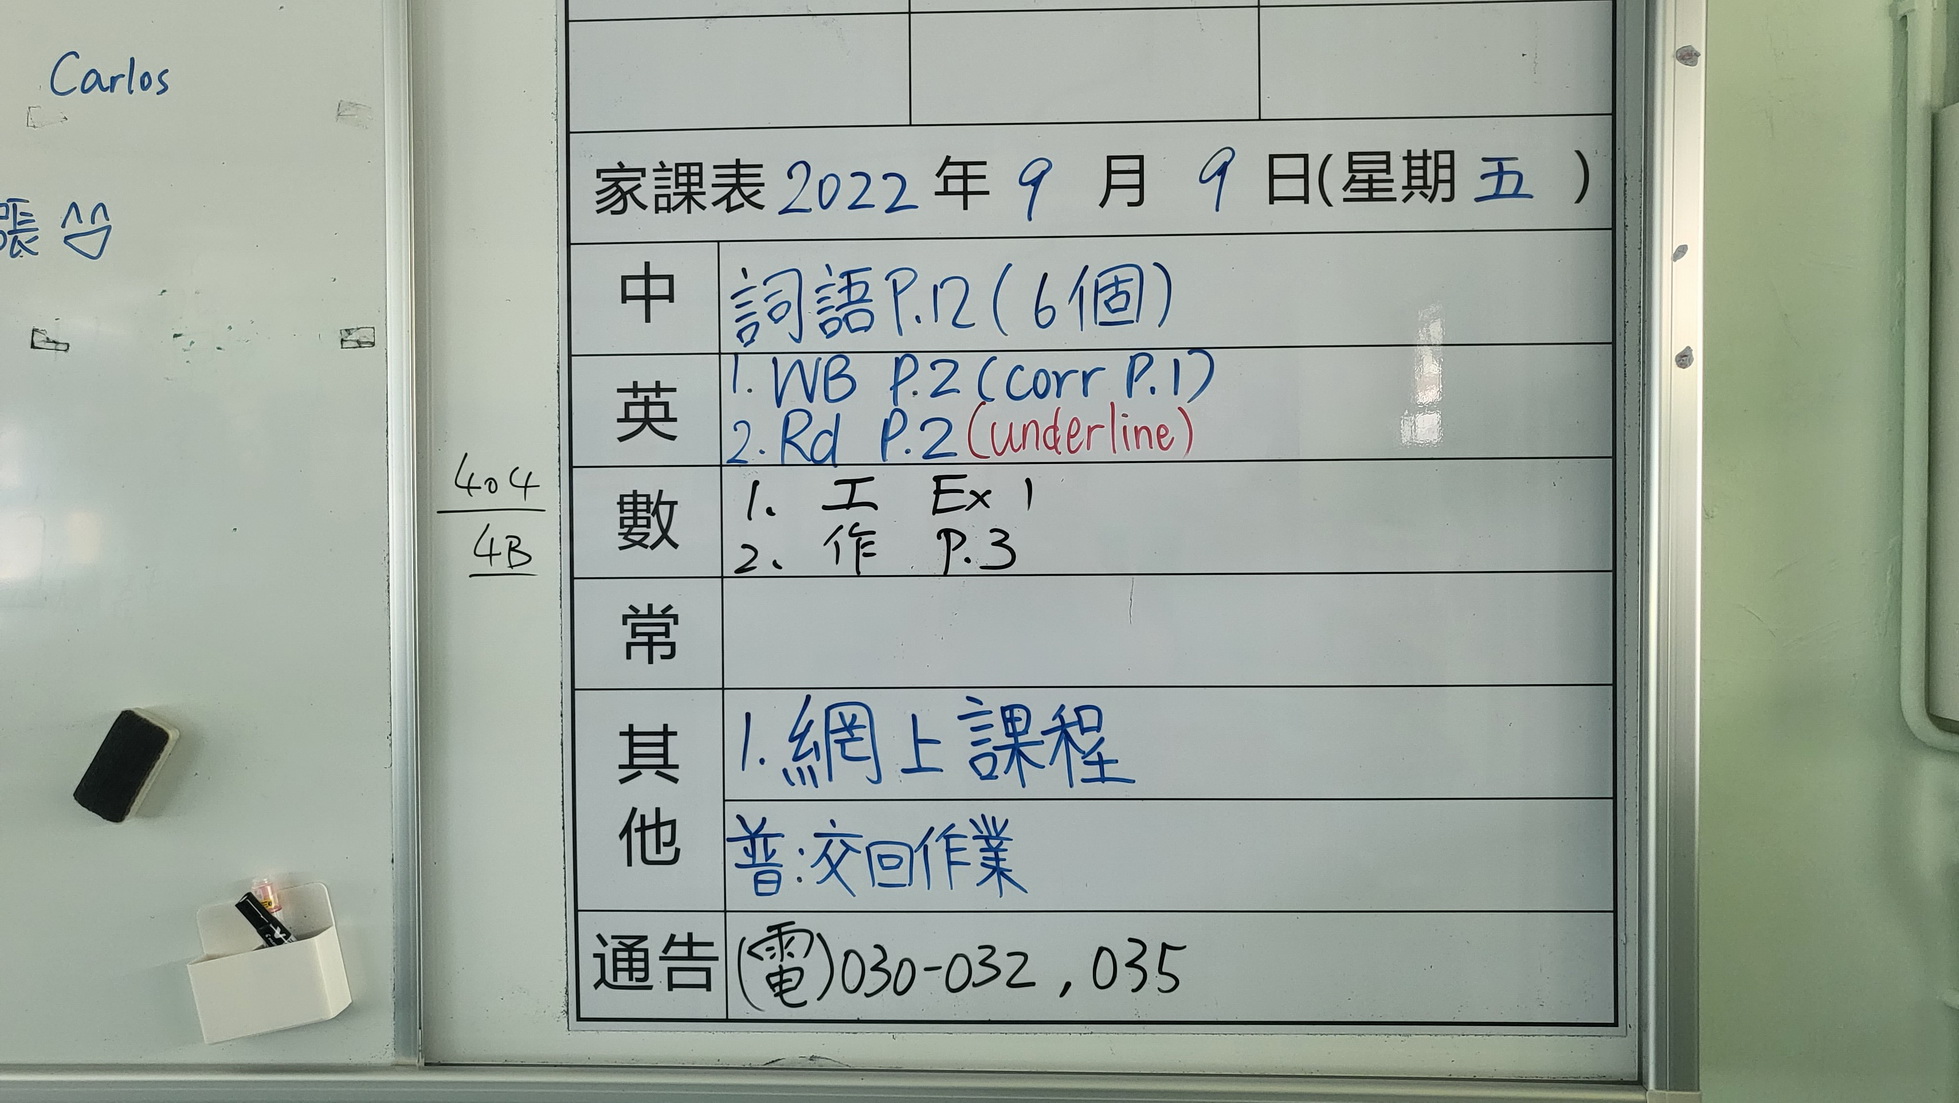 Carlos
張
家課表 2022 年 9 月 9 日(星期 五 )
中 詞語P.12(6個)
英 1. WB P.2 (corr P.1)
2. Rd P.2 (underline)
數 1. 工 Ex 1
2. 作 P.3
常
其他 1. 網上課程
普:交回作業
通告 (電)030-032, 035
404
4B